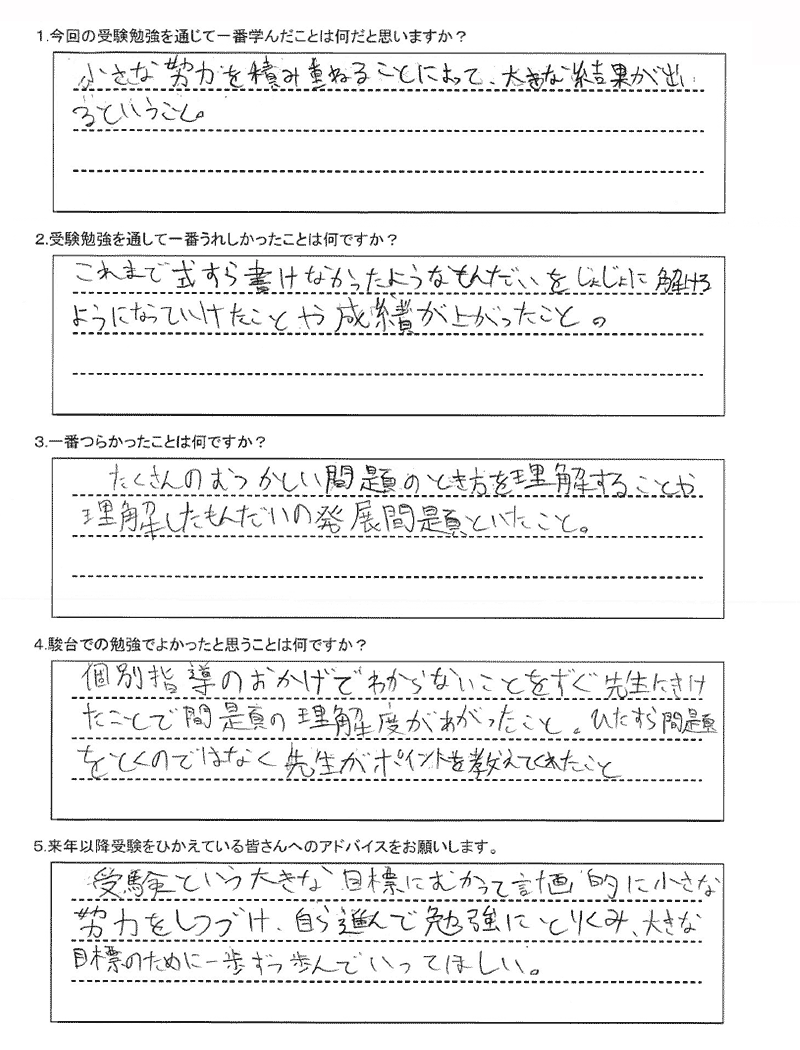 1.今回の受験勉強を通じて一番学んだことは何だと思いますか？
小さな努力を積み重ねることによって、大きな結果が出
るということ。
2.受験勉強を通して一番うれしかったことは何ですか？
これまで式すら書けなかったようなもんだいをじょじょに解ける
ようになっていけたことや成績が上がったこと。
3.一番つらかったことは何ですか？
たくさんのむつかしい問題のとき方を理解することや
理解したもんだいの発展問題といたこと。
4.駿台での勉強でよかったと思うことは何ですか？
個別指導のおかげでわからないことをすぐ先生にきけ
たことで問題の理解度があがったこと。ひたすら問題
をとくのではなく先生がポイントを教えてくれたこと
5.来年以降受験をひかえている皆さんへのアドバイスをお願いします。
受験という大きな目標にむかって計画的に小さな
努力をしつづけ、自ら進んで勉強にとりくみ、大きな
目標のために一歩ずつ歩んでいってほしい。